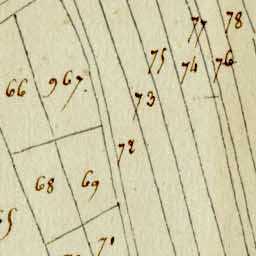 77 78
75 74 76
66 967.
73
72
68 69
71